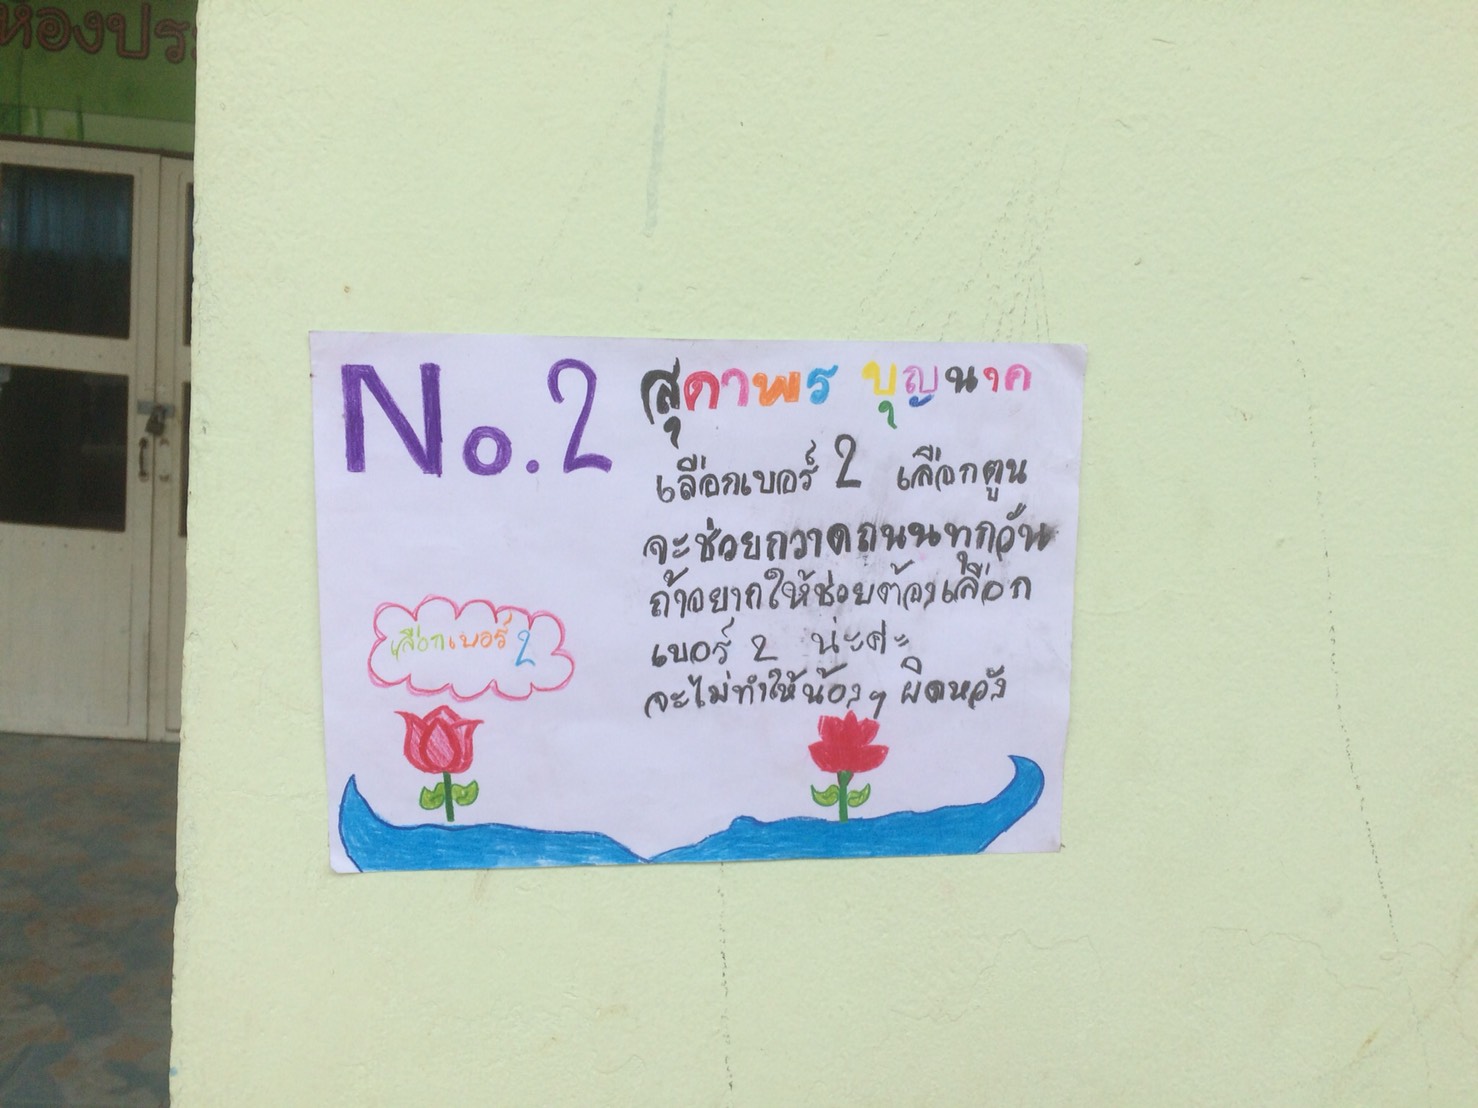 ห้องประ
No.2
สุดาพร บุญนาค
เลือกเบอร์ 2 เลือกตูน
จะช่วยกวาดถนนทุกวัน
ถ้าอยากให้ช่วยต้องเลือก
เบอร์ 2 น่ะค่ะ
จะไม่ทำให้น้องๆ ผิดหวัง
เลือกเบอร์ 2